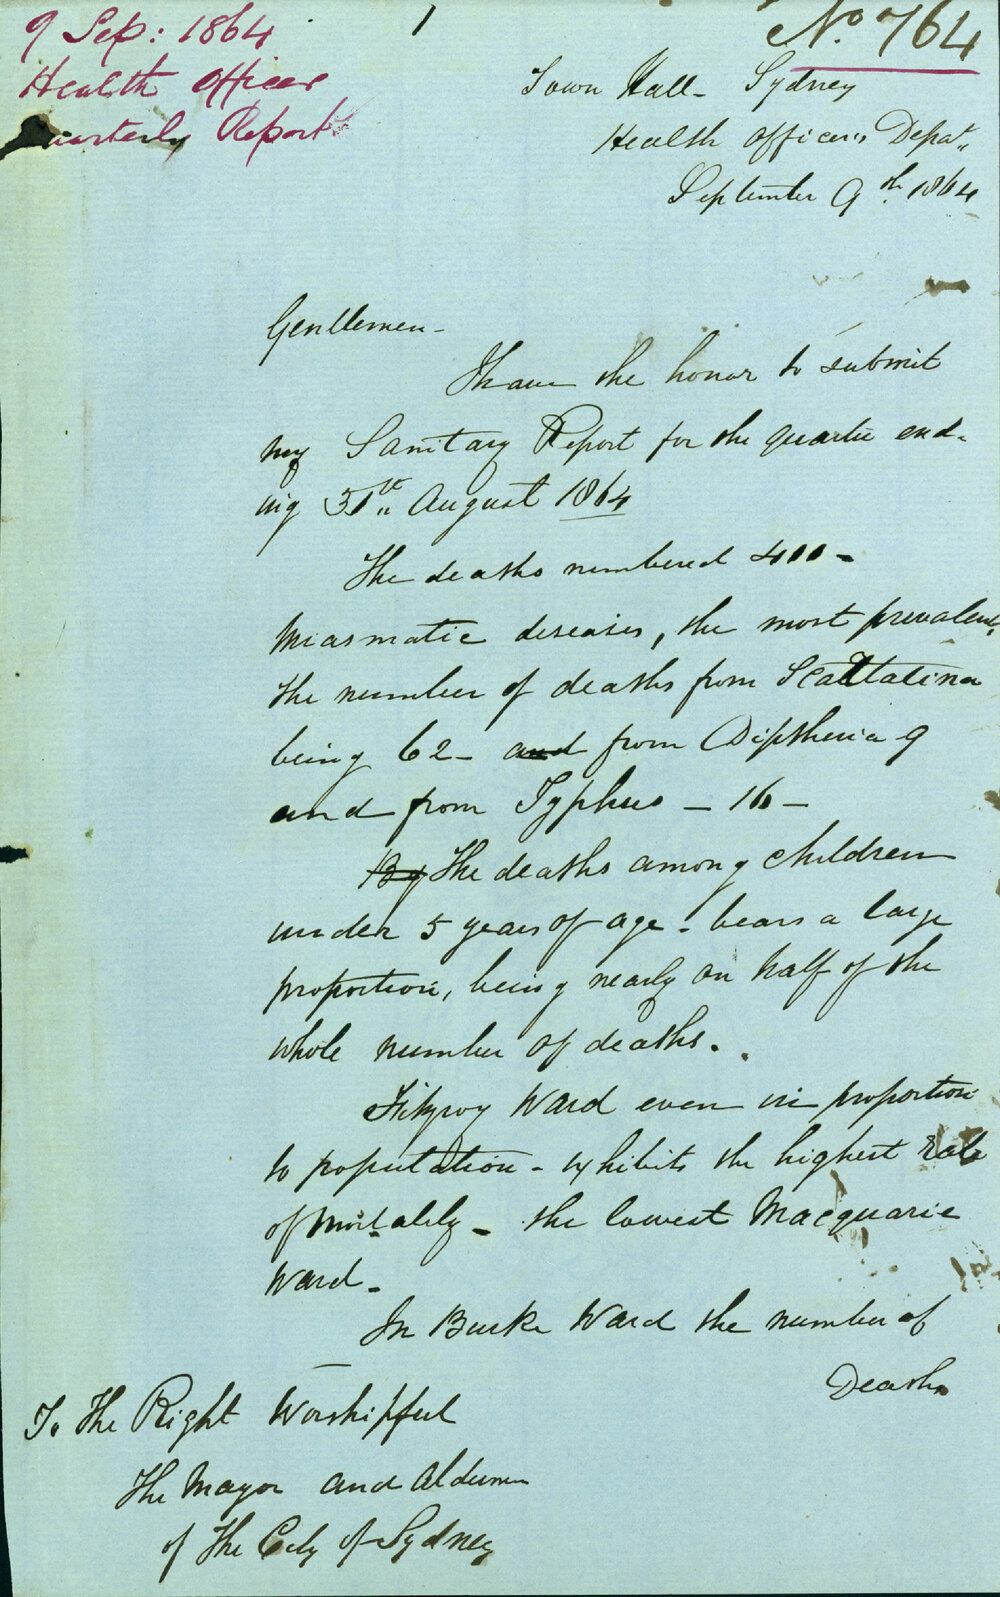 9 Sep: 1864
Health Officer
Quarterly Report
1
No. 764
Town Hall - Sydney
Health Officer's Depat.
September 9th. 1864
Gentlemen -
I have the honor to submit
my Sanitary Report for the quarter end-
ing 31st August 1864
The deaths numbered 400 -
Miasmatic diseases, the most prevalent,
the number of deaths from Scarlatina
being 62 - and from Diptheria 9
and from Typhus - 16 -
By The deaths among children
under 5 years of age - bears a large
proportion, being nearly on half of the
whole number of deaths.
Fitzroy Ward even in proportion
to population - exhibits the highest rate
of Mortality - the lowest Macquarie
Ward -
In Burke Ward the number of
Deaths
To The Right Worshipful
The Mayor and Aldermen
of The City of Sydney